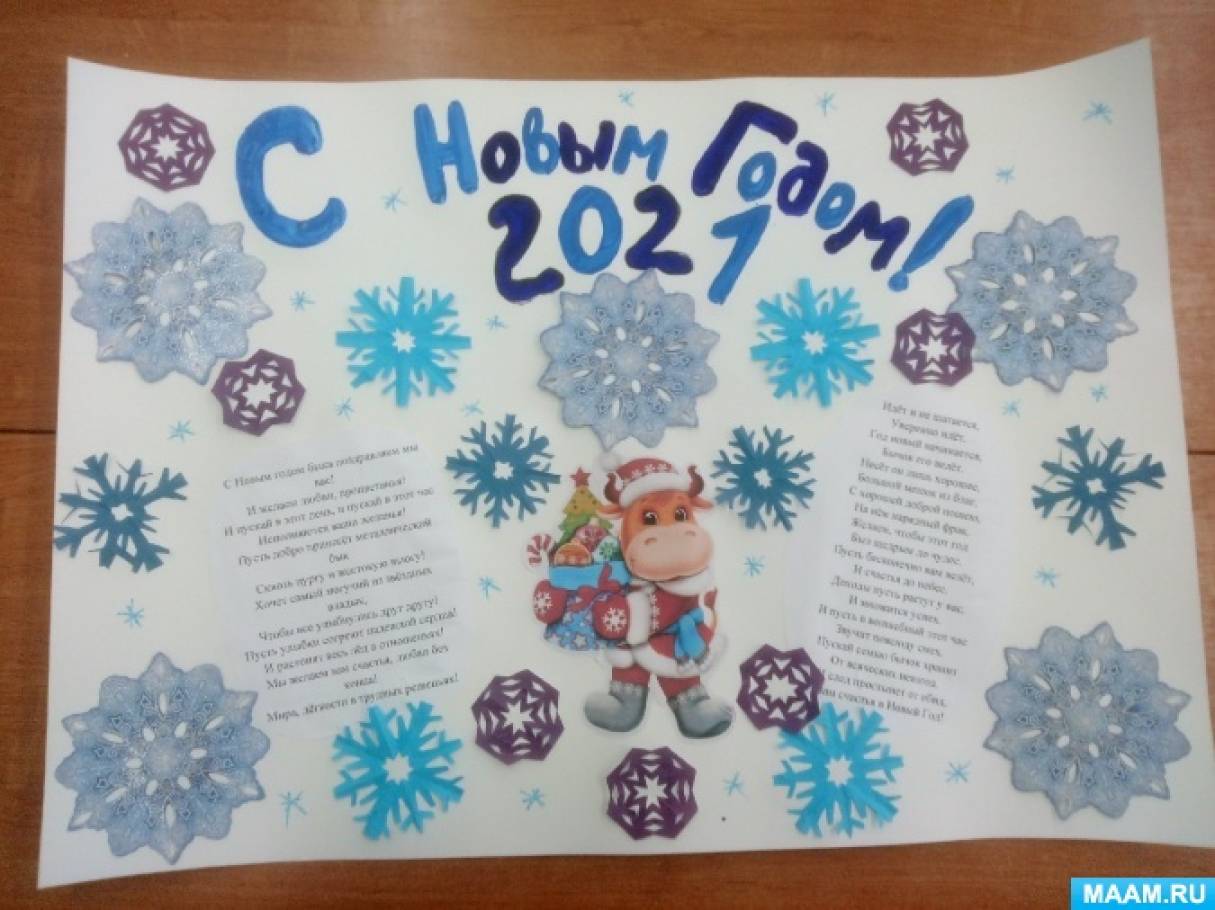 С Новым Годом!
2021
С Новым годом быка поздравляем мы
вас!
И желаем любви, процветанья!
И пускай в этот день, и пускай в этот час
Исполняются ваши желанья!
Пусть добро принесёт металлический
бык
Сквозь пургу и жестокую вьюгу!
Хочет самый могучий из звёздных
владык,
Чтобы все улыбнулись друг другу!
Пусть улыбки согреют надеждой сердца!
И растопят весь лёд в отношеньях!
Мы желаем вам счастья, любви без
конца!
Мира, лёгкости в трудных решеньях!
Идёт и не шатается,
Уверенно идёт.
Год новый начинается,
Бычок его ведёт.
Несёт он лишь хорошее,
Большой мешок из благ.
С хорошей доброй ношею,
На нём нарядный фрак.
Желаем, чтобы этот год
Был щедрым до чудес.
Пусть бесконечно вам везёт,
И счастья до небес.
Доходы пусть растут у вас,
И множится успех.
И пусть в волшебный этот час
Звучит повсюду смех.
Пускай семью бычок хранит
От всяческих невзгод.
И след простынет от обид,
счастья в Новый Год!
MAAM.RU